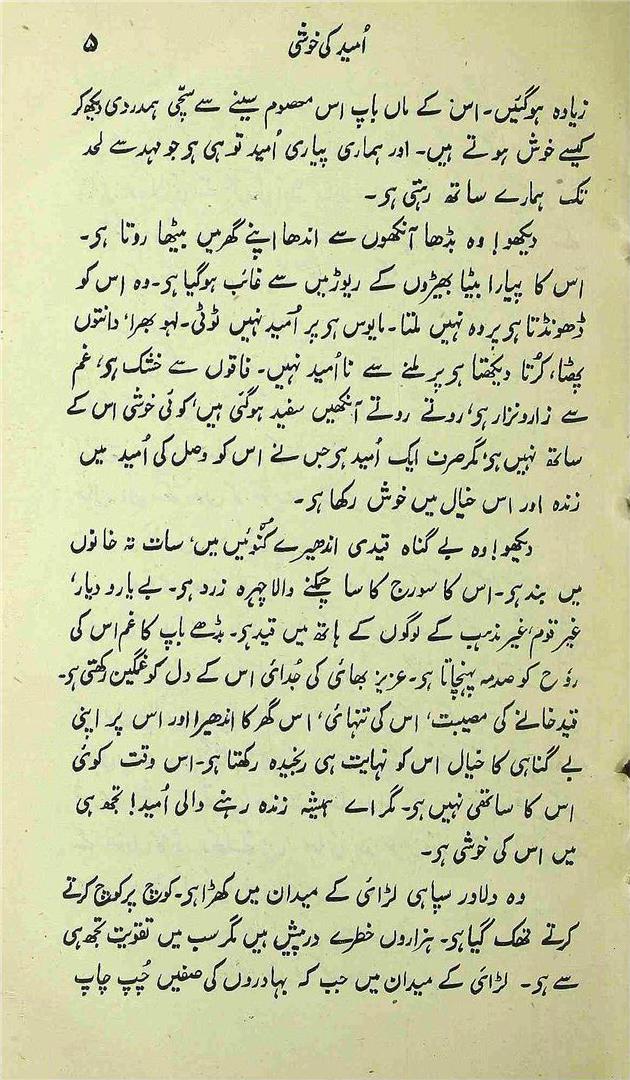 اُمید کی خوشی ۵
زیادہ ہوگئیں۔ اس کے ماں باپ اس معصوم سینے سے سچّی ہمدردی دیکھ کر
کیسے خوش ہوتے ہیں۔ اور ہماری پیاری اُمید تو ہی ہو جو مہد سے لحد
تک ہمارے ساتھ رہتی ہو۔
دیکھو! وہ بڈھا آنکھوں سے اندھا اپنے گھر میں بیٹھا روتا ہو۔
اس کا پیارا بیٹا بھیڑوں کے ریوڑ میں سے غائب ہوگیا ہو۔ وہ اس کو
ڈھونڈتا ہو پر وہ نہیں ملتا۔ مایوس ہو پر اُمید نہیں ٹوٹی۔ لہو بھرا، دانتوں
پھٹا، کُرتا دیکھتا ہو پر ملنے سے نااُمید نہیں۔ فاقوں سے خشک ہو، غم
سے زارو نزار ہو، روتے روتے آنکھیں سفید ہوگئی ہیں، کوئی خوشی اس کے
ساتھ نہیں ہو، مگر صرف ایک اُمید ہو جس نے اس کو وصل کی اُمید میں
زندہ اور اس خیال میں خوش رکھا ہو۔
دیکھو! وہ بے گناہ قیدی اندھیرے کُنوئیں میں، سات تہ خانوں
میں بند ہو۔ اس کا سورج کا سا چمکنے والا چہرہ زرد ہو۔ بے یار و دیار،
غیر قوم، غیر مذہب کے لوگوں کے ہاتھ میں قید ہو۔ بڈھے باپ کا غم اس کی
روٗح کو صدمہ پہنچاتا ہو۔ عزیز بھائی کی جُدائی اس کے دل کو غمگین رکھتی ہو۔
قید خانے کی مصیبت، اس کی تنہائی، اس گھر کا اندھیرا اور اس پر اپنی
بے گناہی کا خیال اس کو نہایت ہی رنجیدہ رکھتا ہو۔ اس وقت کوئی
اس کا ساتھی نہیں ہو۔ مگر اے ہمیشہ زندہ رہنے والی اُمید! تجھ ہی
میں اس کی خوشی ہو۔
وہ دلاور سپاہی لڑائی کے میدان میں کھڑا ہو۔ کوچ پر کوچ کرتے
کرتے تھک گیا ہو۔ ہزاروں خطرے درپیش ہیں مگر سب میں تقویت تجھ ہی
سے ہو۔ لڑائی کے میدان میں جب کہ بہادروں کی صفیں چُپ چاپ